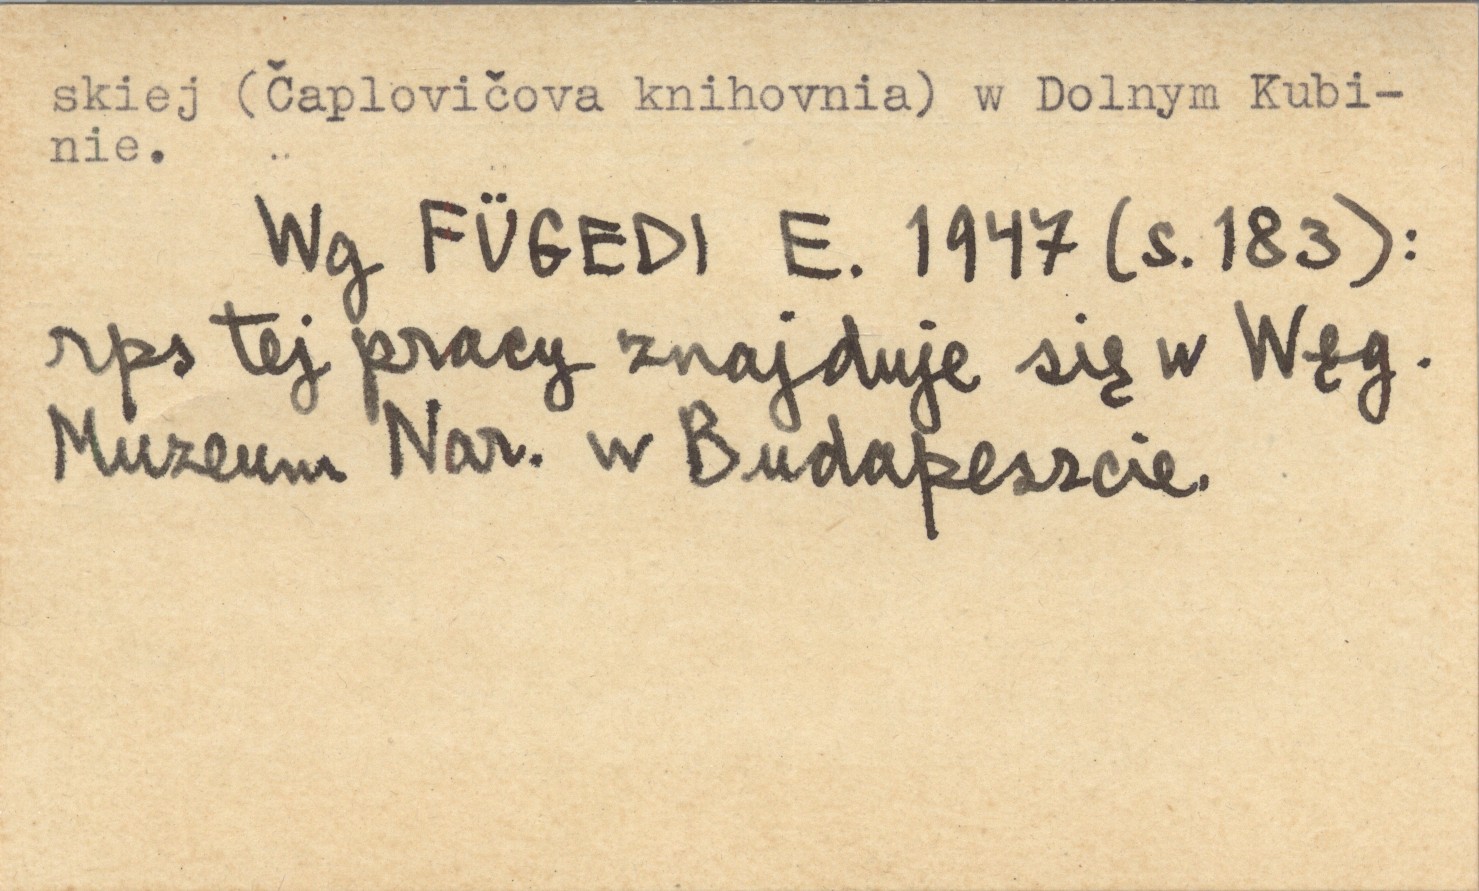 skiej (Čaplovičova knihovnia) w Dolnym Kubi-
nie.
Wg FÜGEDI E. 1947 (s. 183):
rps tej pracy znajduje się w Węg.
Muzeum Nar. w Budapeszcie.